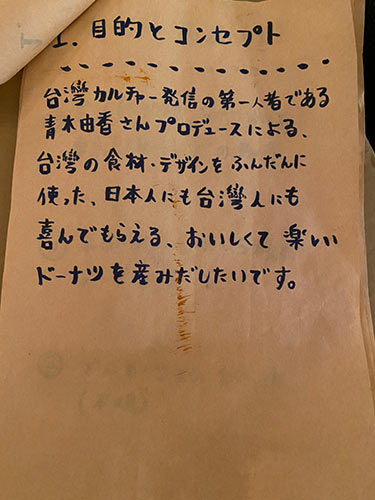 1. 目的とコンセプト
台灣カルチャー発信の第一人者である
青木由香さんプロデュースによる、
台灣の食材・デザインをふんだんに
使った、日本人にも台灣人にも
喜んでもらえる、おいしくて楽しい
ドーナツを産みだしたいです。